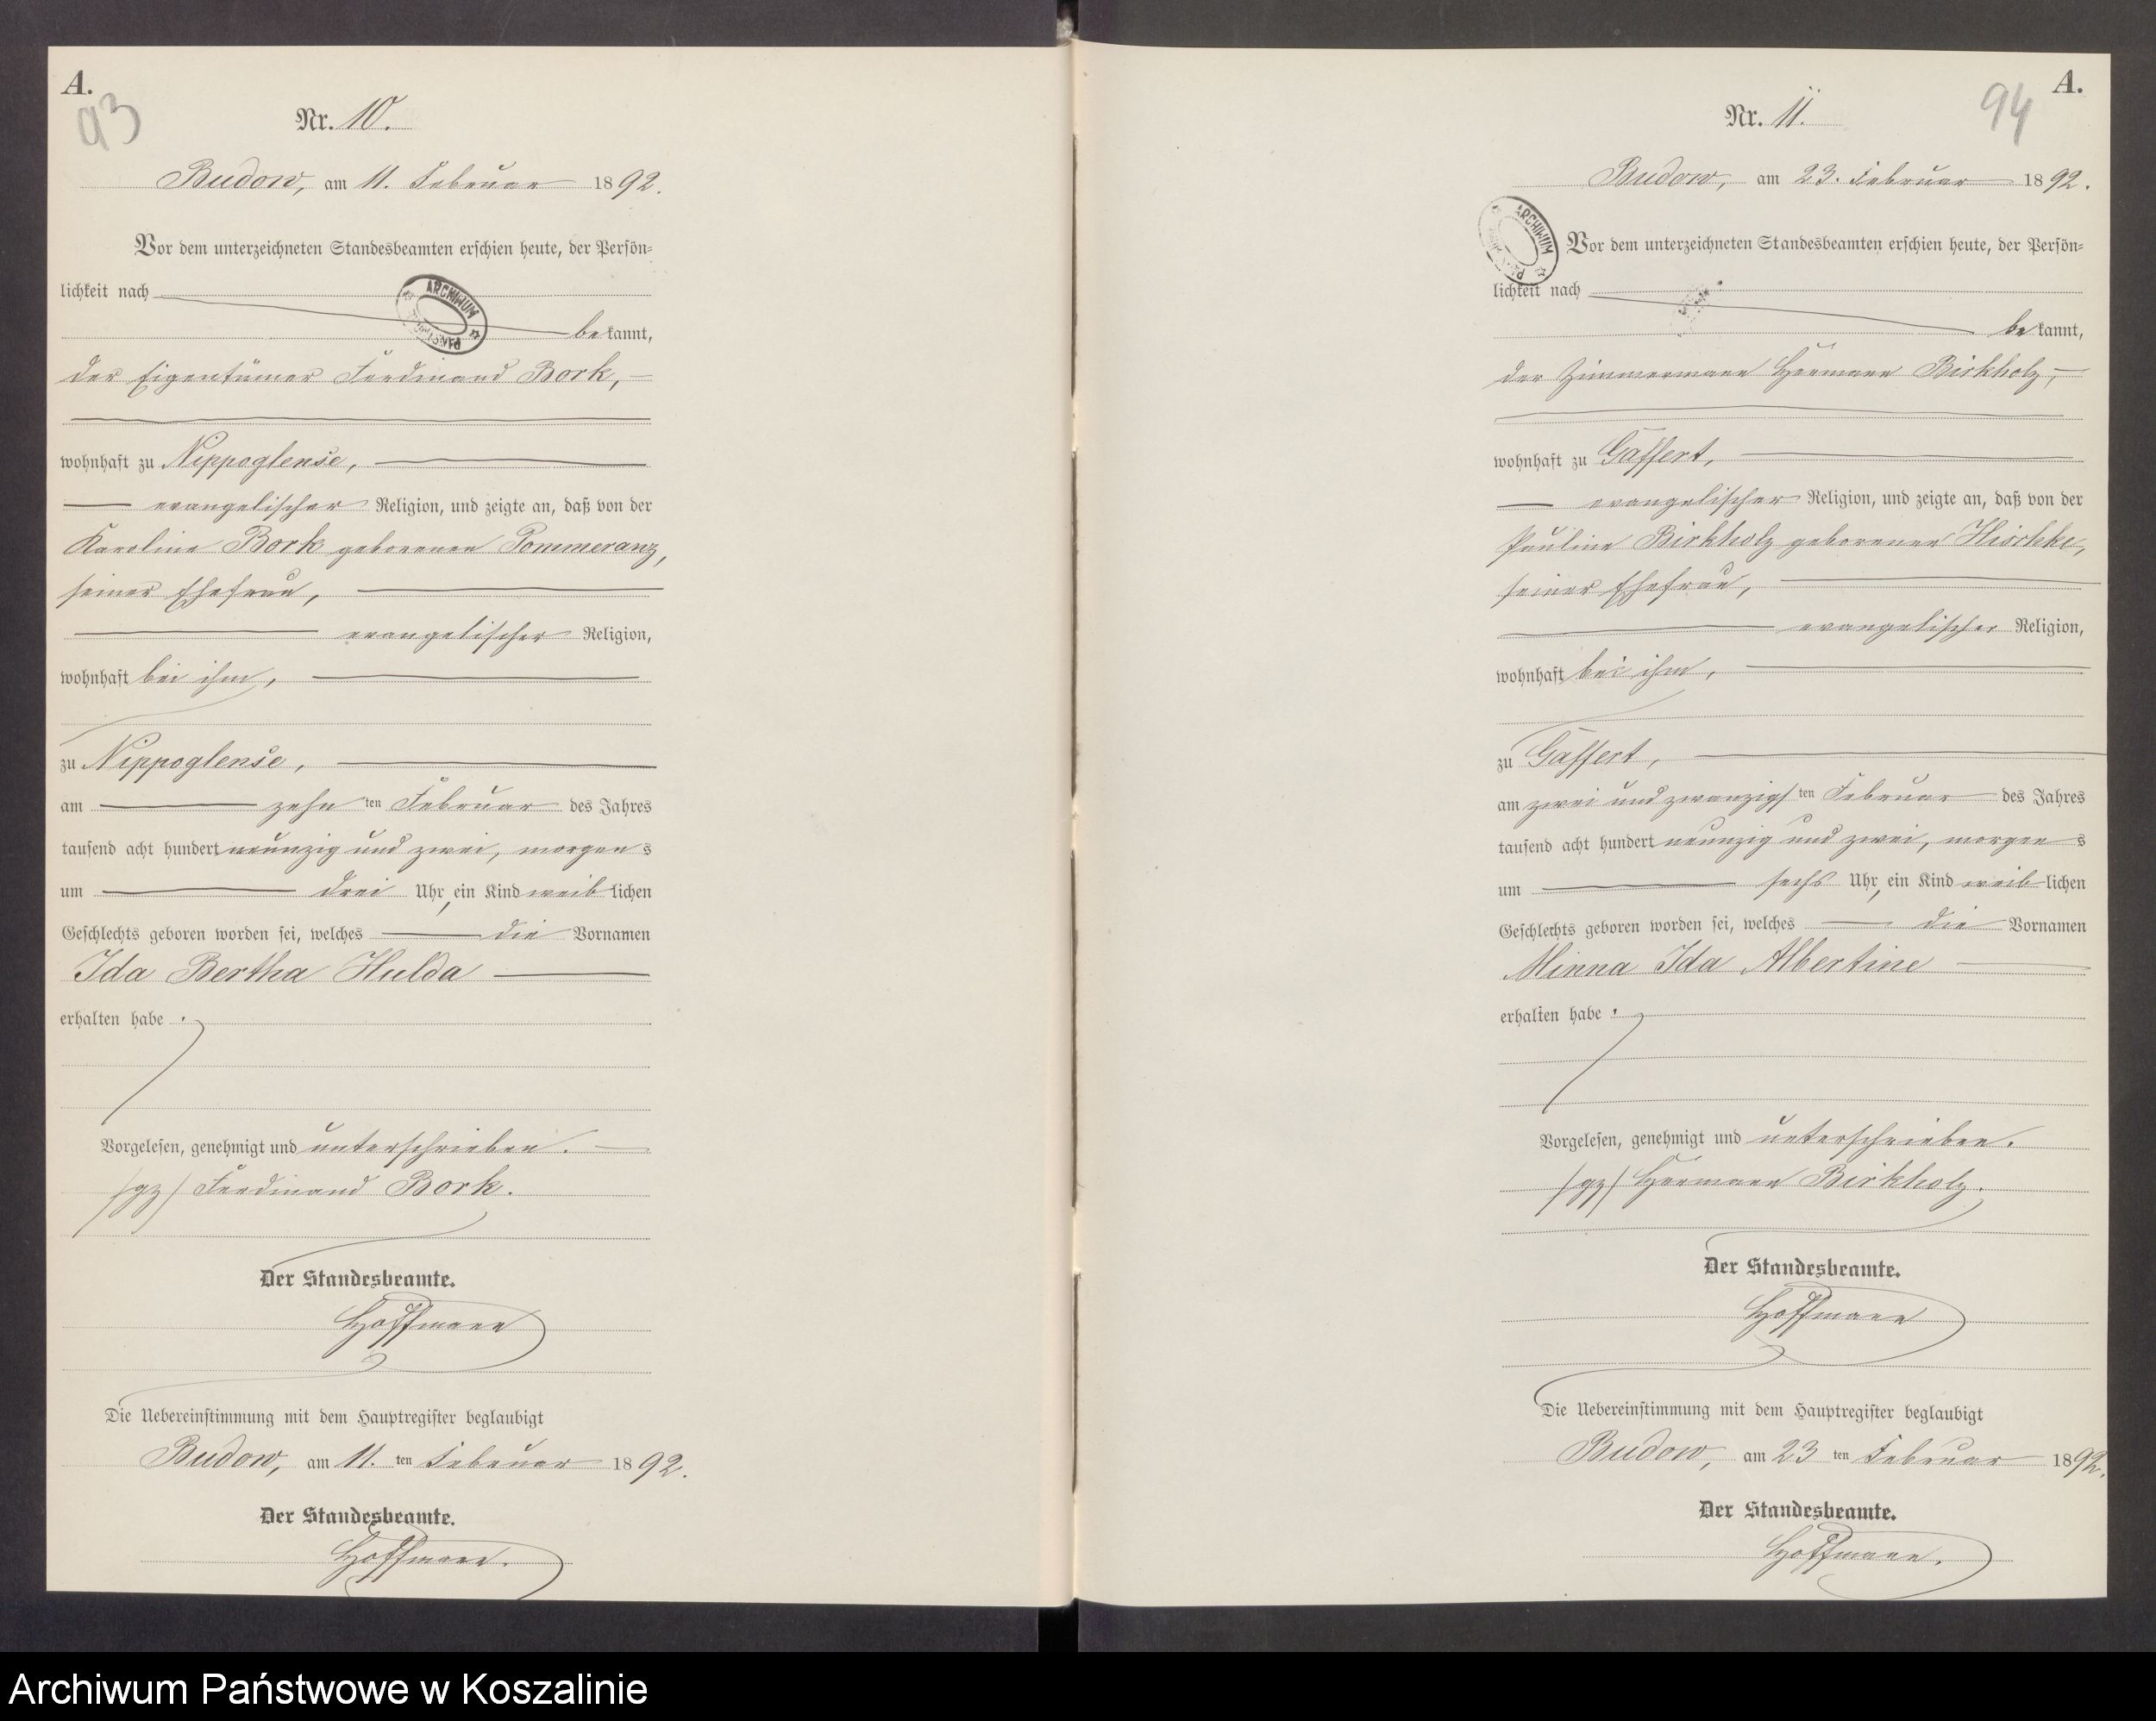 A.
93
Nr. 10.
Budow, am 11. Februar 1892.
Vor dem unterzeichneten Standesbeamten erschien heute, der Persön=
lichkeit nach
bekannt,
der Eigentümer Ferdinand Bork,
wohnhaft zu Nippoglense,
evangelischer Religion, und zeigte an, daß von der
Karoline Bork geborenen Pommeranz,
seiner Ehefrau,
evangelischer Religion,
wohnhaft bei ihm,
zu Nippoglense,
am zehnten Februar des Jahres
tausend acht hundert neunzig und zwei, morgens
um drei Uhr, ein Kind weiblichen
Geschlechts geboren worden sei, welches die Vornamen
Ida Bertha Hulda
erhalten habe.
Vorgelesen, genehmigt und unterschrieben.
/gz/ Ferdinand Bork.
Der Standesbeamte.
Hoffmann
Die Uebereinstimmung mit dem Hauptregister beglaubigt
Budow, am 11. ten Februar 1892.
Der Standesbeamte.
Hoffmann.
ARCHIWUM
A.
94
Nr. 11.
Budow, am 23. Februar 1892.
Vor dem unterzeichneten Standesbeamten erschien heute, der Persön=
lichkeit nach
bekannt,
der Zimmermann Hermann Birkholz,
wohnhaft zu Gaffert,
evangelischer Religion, und zeigte an, daß von der
Pauline Birkholz geborenen
seiner Ehefrau,
evangelischer Religion,
wohnhaft bei ihm,
zu Gaffert,
am zwei und zwanzigsten Februar des Jahres
tausend acht hundert neunzig und zwei, morgens
um sechs Uhr, ein Kind weiblichen
Geschlechts geboren worden sei, welches die Vornamen
Minna Ida Albertine
erhalten habe.
Vorgelesen, genehmigt und unterschrieben.
/gz/ Hermann Birkholz.
Der Standesbeamte.
Hoffmann
Die Uebereinstimmung mit dem Hauptregister beglaubigt
Budow, am 23 ten Februar 1892.
Der Standesbeamte.
Hoffmann.
ARCHIWUM
Archiwum Państwowe w Koszalinie